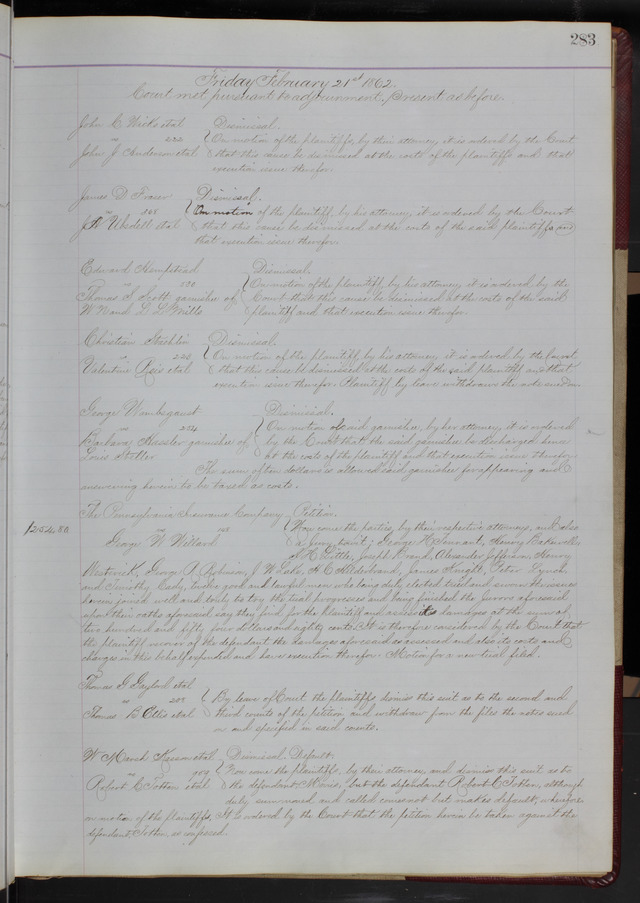 283
Friday February 21st 1862
Court met pursuant to adjournment, present as before.
John C Wicks et al Dismissal.
vs 232 On motion of the plaintiffs, by their attorney, it is ordered by the Court
John J Anderson et al that this cause be dismissed at the costs of the plaintiffs and that
execution issue therefor.
James D Fraser Dismissal.
vs On motion of the plaintiff, by his attorney, it is ordered by the Court
et al that this cause be dismissed at the costs of the said plaintiff and
that execution issue therefor.
Edward Hempstead Dismissal.
vs On motion of the plaintiff, by his attorney, it is ordered by the
Thomas S Scott garnishee of Court that this cause be dismissed at the costs of the said
plaintiff and that execution issue therefor.
Christian Dismissal.
vs On motion of the plaintiff, by his attorney it is ordered by the Court,
Valentine Reis et al that this cause be dismissed at the costs of the said plaintiff and that
execution issue therefor. Plaintiff by leave withdraws the note sued on
George Dismissal.
vs 274 On motion of said garnishee, by her attorney, it is ordered
Barbara Hessler garnishee of by the Court that the said garnishee be discharged hence
Louis at the costs of the plaintiff and that execution issue therefor
The sum of ten dollars is allowed said garnishee for appearing and
answering herein to be taxed as costs.
The Pennsylvania Insurance Company Petition.
$254.80 vs Now come the parties, by their respective attorneys, and also
George W Willard a jury, to wit; George H Henry
Joseph Brand, Alexander Jefferson, Henry
George A Robinson, J W Luke, H C Hildebrand, James Knight, Peter Lynch
and Timothy Cady, twelve good and lawful men who being duly elected tried and sworn the issues
herein joined well and truly to try the trial progresses and being finished the jurors aforesaid
upon their oaths aforesaid say they find for the plaintiff and assess its damages at the sum of
two hundred and fifty four dollars and eighty cents. It is therefore considered by the Court that
the plaintiff recover of the defendant the damages aforesaid as assessed and also its costs and
charges in this behalf expended and have execution therefor. Motion for a new trial filed.
Thomas G Gaylord et al
vs By leave of Court the plaintiffs dismiss this suit as to the second and
Thomas R Ellis et al third counts of the petition, and withdraw from the files the notes sued
on and specified in said counts.
W Marsh et al Dismissal. Default.
vs Now come the plaintiffs, by their attorney, and dismiss this suit as to
Robert C Totten et al the defendant but the defendant Robert C Totten, although
duly summoned and called comes not but makes default; wherefore
on motion of the plaintiffs, It is ordered by the Court that the petition herein be taken against the
defendant, Totten as confessed.